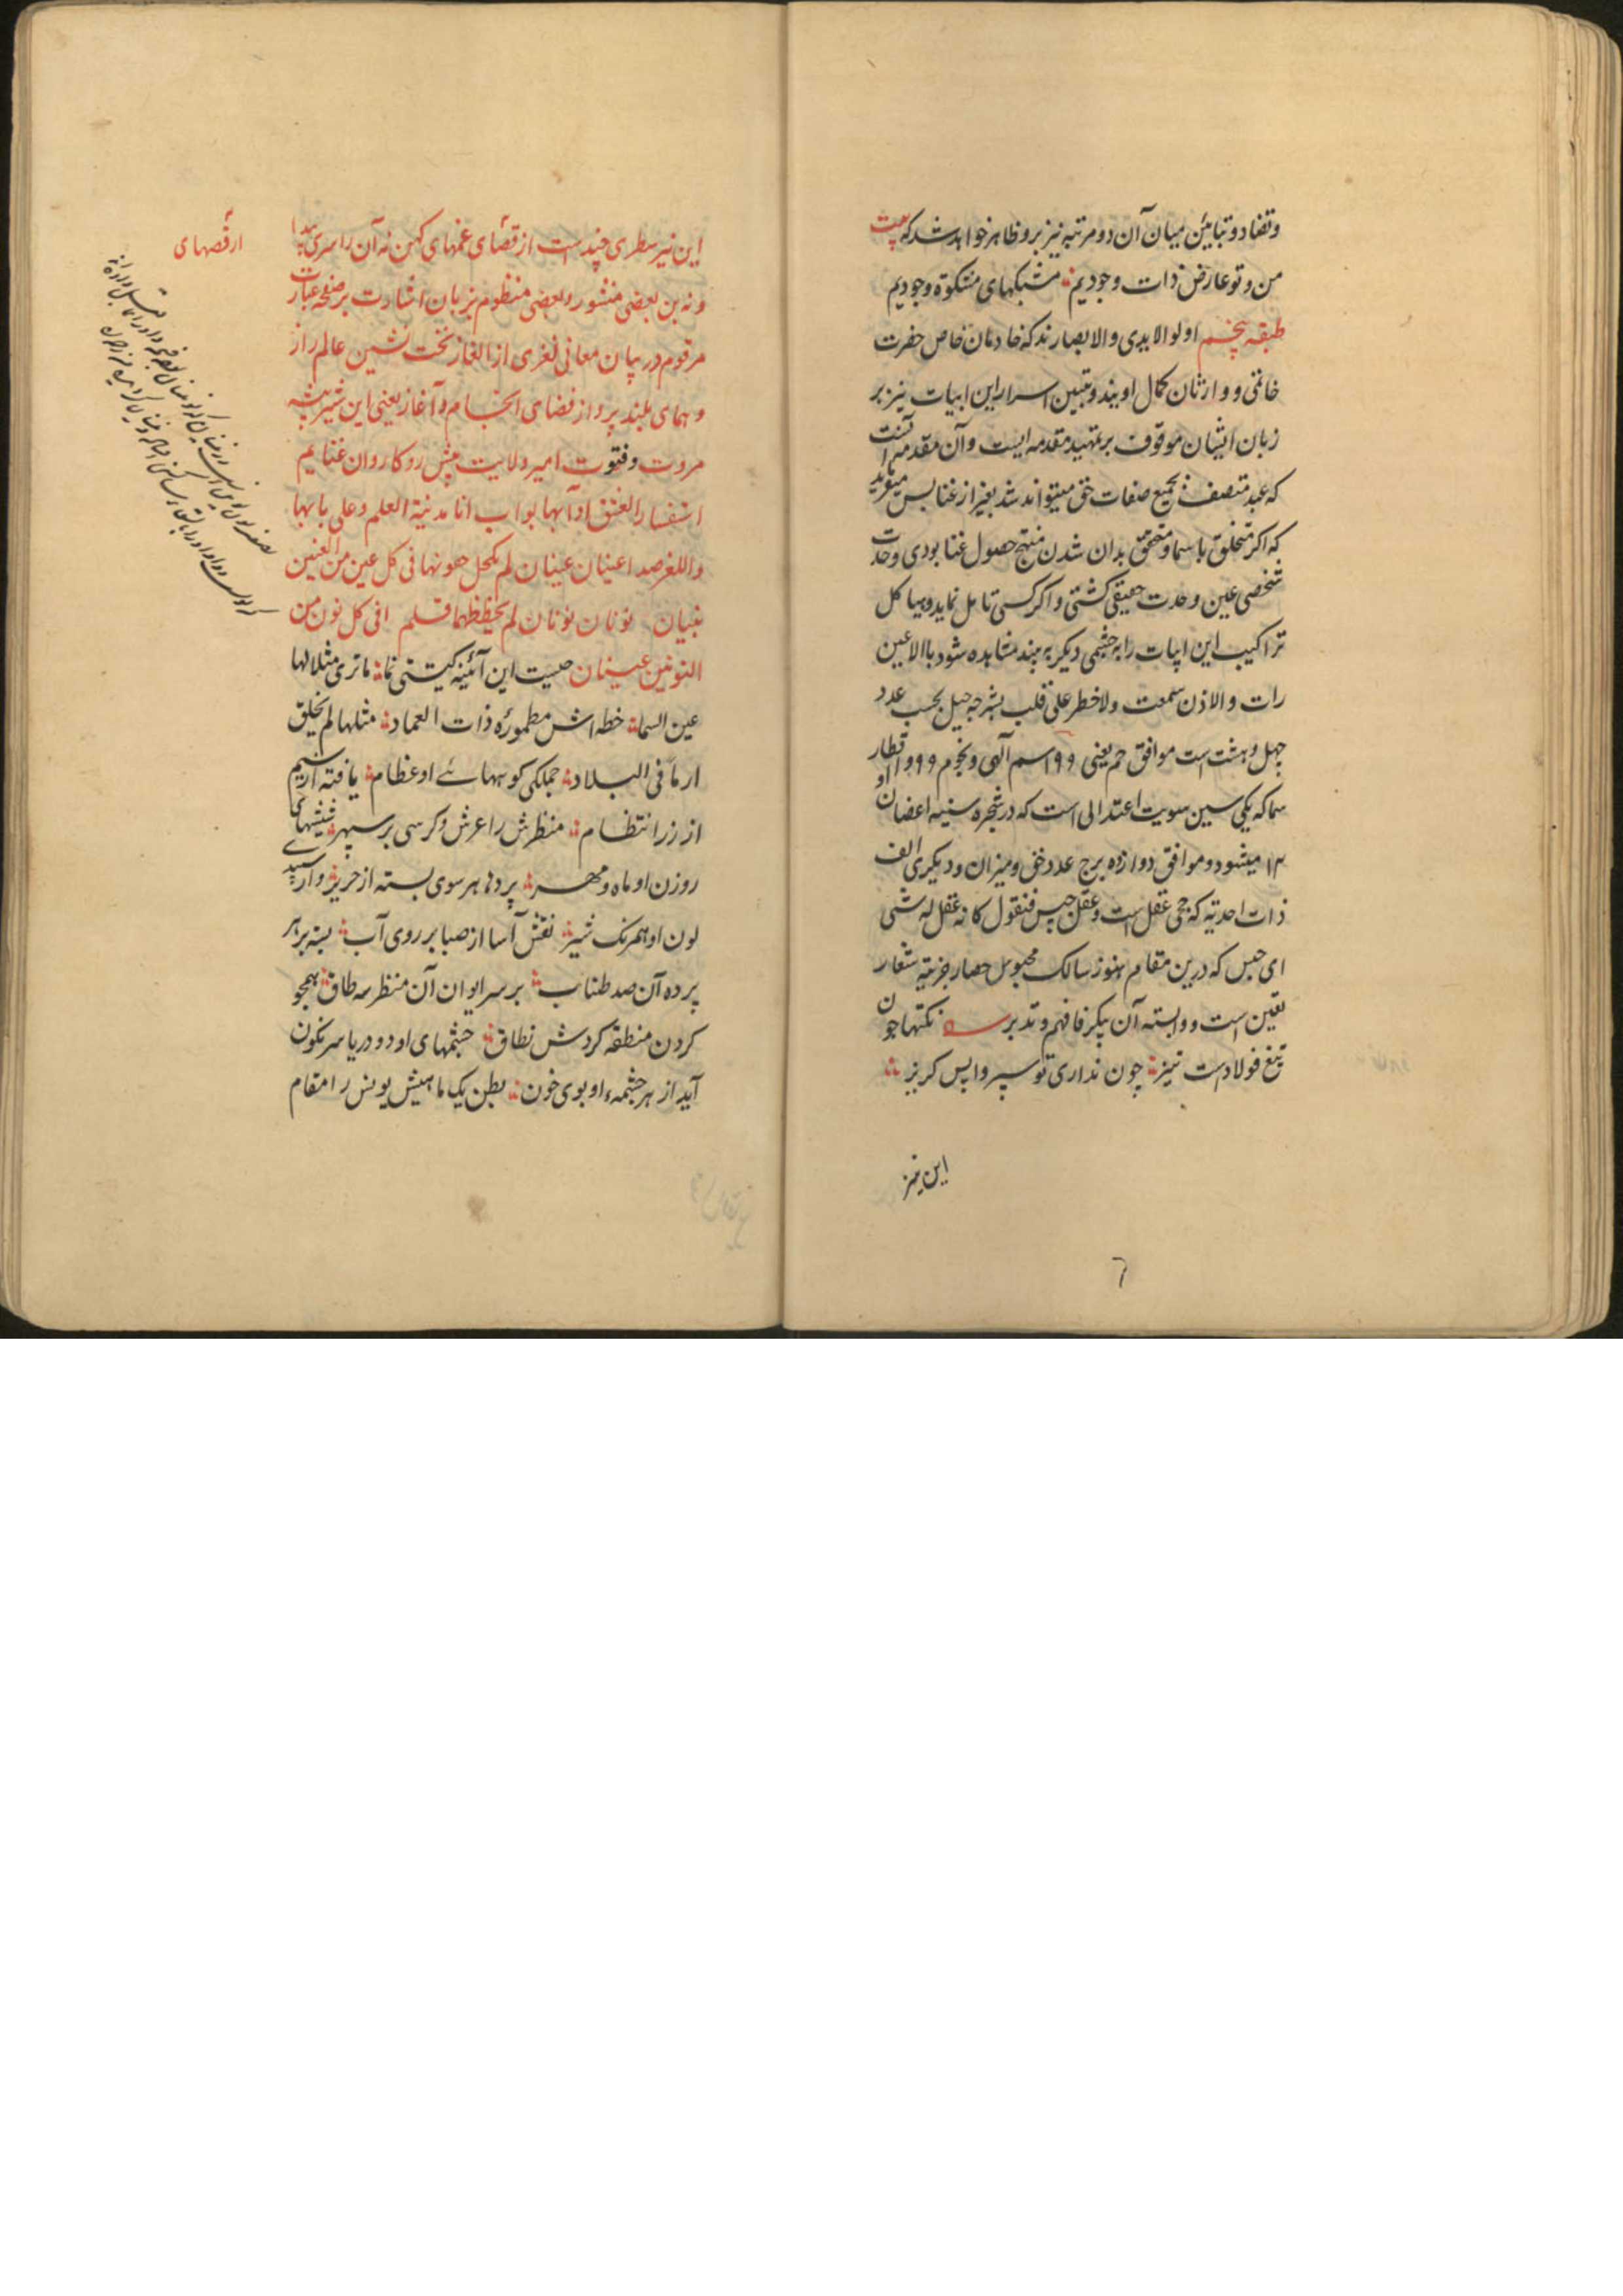 وتضاد و تباین میان آن دو مرتبه نیز برو ظاهر خواهد شد که بیت
من و تو عارض ذات وجودیم مشبکهای مشکوة وجودیم
طبقه پنجم اولو الایدی والابصارند که خادمان خاص حضرت
خاتمی و وارثان کمال اویند و تبیین اسرار این ابیات نیز بر
زبان ایشان موقوف بر تمهید مقدمه ایست وآن مقدمه آنست
که عبد متصف بجمیع صفات حق میتواند شد بغیر از غنا پس میگوید
که اکر متخلق باسما و متحقق بدان شدن منتج حصول غنا بودی وحدت
شخصی عین وحدت حقیقی کشتی و اکر کسی تامل نماید و هیاکل
تراکیب این ابیات را به چشمی دیکر به بیند مشاهده شود باالاعین
رات و الاذن سمعت ولا خطر علی قلب بشر چه جیل بحسب عدد
چهل و هشت است موافق حم یعنی ۹۹ اسم آلهی و نجوم ۹۹ و اقطار
سما که یکی سین سویت اعتدالی است که در شجره سنیه اعضان او
۱۲ میشود و موافق دوازده برج عدد خفی و میزان و دیکری الف
ذات احدیه که حجی عقل است و عقل حبس فنقول کانه عقل له شی
ای حبس که درین مقام هنوز سالک محبوس حصار جزئیه شعار
تعین است و وابسته آن پیکر فافهم وتدبر نکتها جون
تیغ فولادست تیز چون نداری تو سپر واپس کریز
این نیز
٦
این نیز سطری چند است از قصهای غمهای کهن نه آن را سری پیدا
و نه بن بعضی منثور و بعضی منظوم بزبان اشارت بر صفحه عبارت
مرقوم در بیان معانی لغزی از الغاز تخت نشین عالم راز
و همای بلند پرواز فضای انجام و آغاز یعنی این شیر بیشه
مروت و فتوت امیر ولایت پیش رو کاروان غنایم
استفسار العنق اداآبها بواب انا مدینة العلم و علی بابها
واللغز صدا عینان عینان لم یکحل هونها فی کل عین من العنین
بنیان نونان نونان لم یحفظهما قلم افی کل نون من
النونین عینان چیست این آئینه کیتی نما ما تری مثلا لها
عین السما خطه اش مطموره ذات العماد مثلها لم یخلق
ارما فی البلاد جملکی کوبهائے او عظام یافته از سیم
از زر انتظام منظرش را عرش و کرسی بر سپهر شیشهای
روزن او ماه و مهر پردها هر سوی بسته از حریر وارسپید
لون او همرنک شیر نقش آسا از صبا بر روی آب بسته بر هر
پرده آن صد طناب بر سر ایوان آن منظر سه طاق همچو
کردن منطقه کردش نطاق چشمهای او دو دریا سرنکون
آید از هر چشمه او بوی خون بطن یک ماهیش یونس را مقام
از قصهای